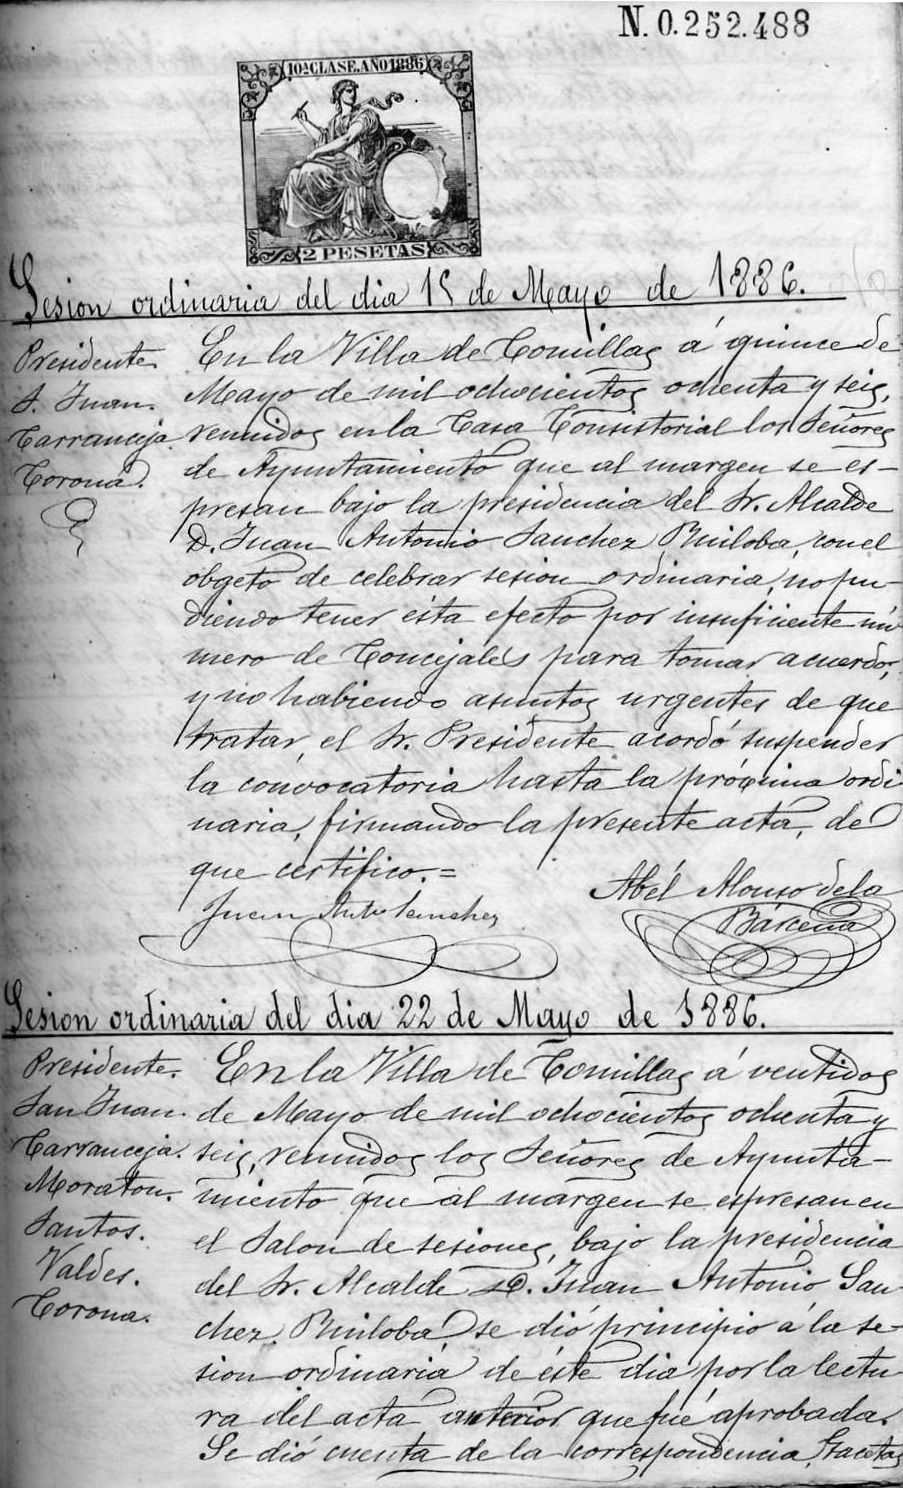 N. 0.252.488
10ª CLASE. AÑO 1886
2 PESETAS
Sesion ordinaria del dia 15 de Mayo de 1886.
Presidente
S. Juan.
Carranceja
Corona.
En la Villa de Comillas á quince de
Mayo de mil ochocientos ochenta y seis,
reunidos en la Casa Consistorial los Señores
de Ayuntamiento que al margen se es-
presan bajo la presidencia del Sr. Alcalde
D. Juan Antonio Sanchez Ruiloba, con el
obgeto de celebrar sesion ordinaria, no pu-
diendo tener ésta efecto por insuficiente nú
mero de Concejales para tomar acuerdo,
y no habiendo asuntos urgentes de que
tratar, el Sr. Presidente acordó suspender
la convocatoria hasta la próxima ordi
naria, firmando la presente acta, de
que certifico. =
Juan Antº Sanchez
Abél Alonso de la
Barcena
Sesion ordinaria del dia 22 de Mayo de 1886.
Presidente.
San Juan.
Carranceja.
Moraton.
Santos.
Valdes.
Corona.
En la Villa de Comillas á ventidos
de Mayo de mil ochocientos ochenta y
seis, reunidos los Señores de Ayunta-
miento que al margen se espresan en
el Salon de sesiones, bajo la presidencia
del Sr. Alcalde D. Juan Antonio San
chez Ruiloba se dió principio á la se-
sion ordinaria de éste dia por la lectu
ra del acta anterior que fué aprobada.
Se dió cuenta de la correspondencia, Gacetas